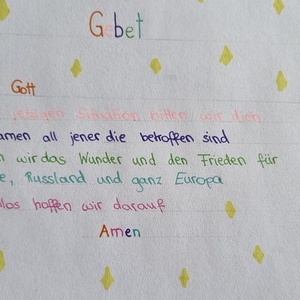 Gebet
Gott
jetzigen Situation bitten wir dich
amen all jener die betroffen sind
wir das Wunder und den Frieden für
e, Russland und ganz Europa
los hoffen wir darauf
Amen